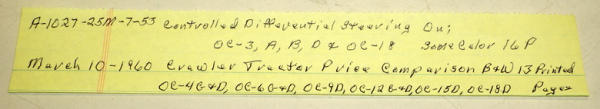 A-1027-25M-7-53 Controlled Differential Steering On;
OC-3, A, B, D & OC-18 Some Color 16 P
March 10-1960 Crawler Tractor Price Comparison B&W 13 Printed
OC-4G&D, OC-6G&D, OC-9D, OC-12G&D, OC-15D, OC-18D Pages